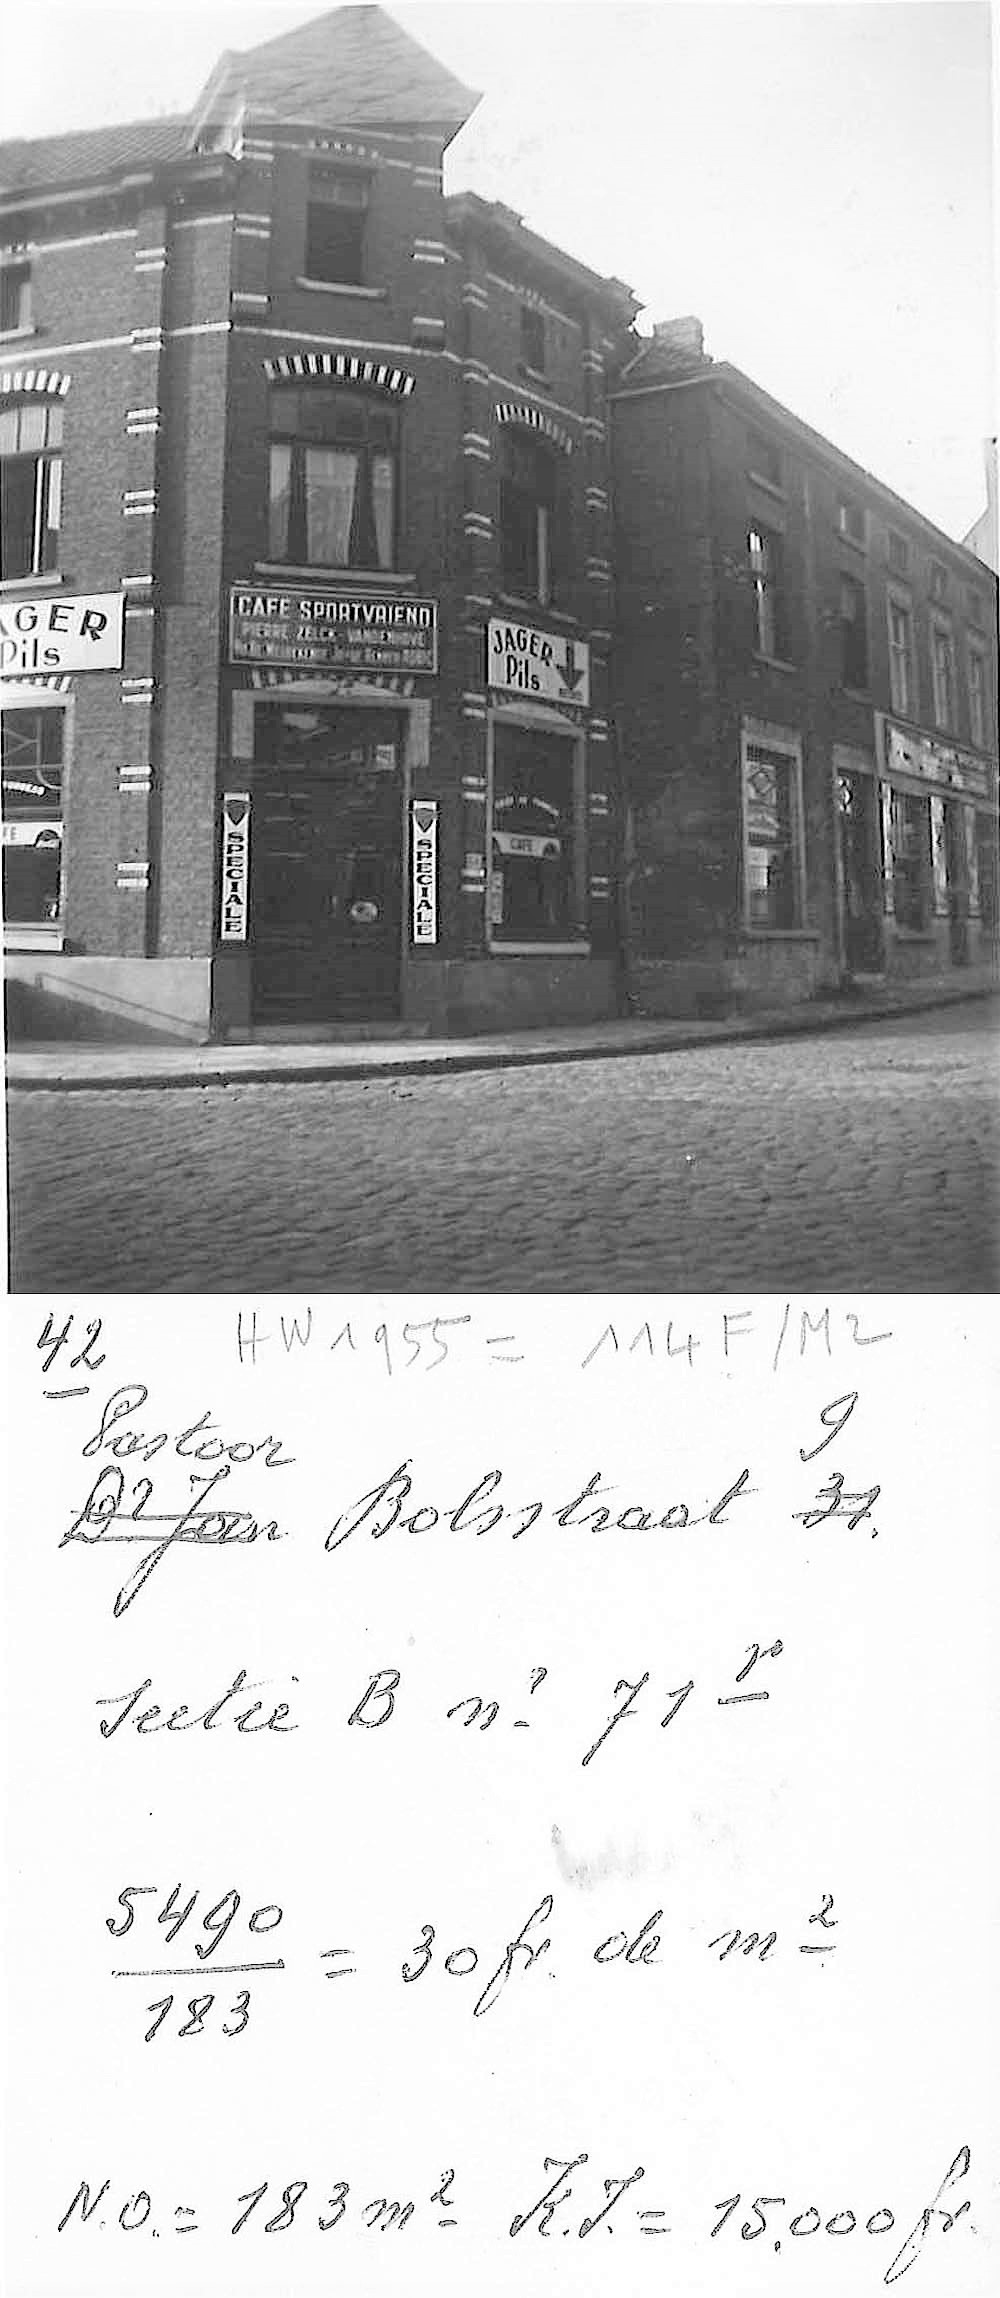 CAFE SPORTVRIEND
PIERRE ZELCK-VANDENHOVE
AGER
Pils
JAGER
Pils
CAFE
SPECIALE
SPECIALE
42 HW 1955 = 114 F/M2
Pastoor 9
Dr Jan Bolsstraat 31.
Sectie B n°
5490
183
= 30 fr. de m²
N.O. = 183 m² K.I. = 15.000 fr.